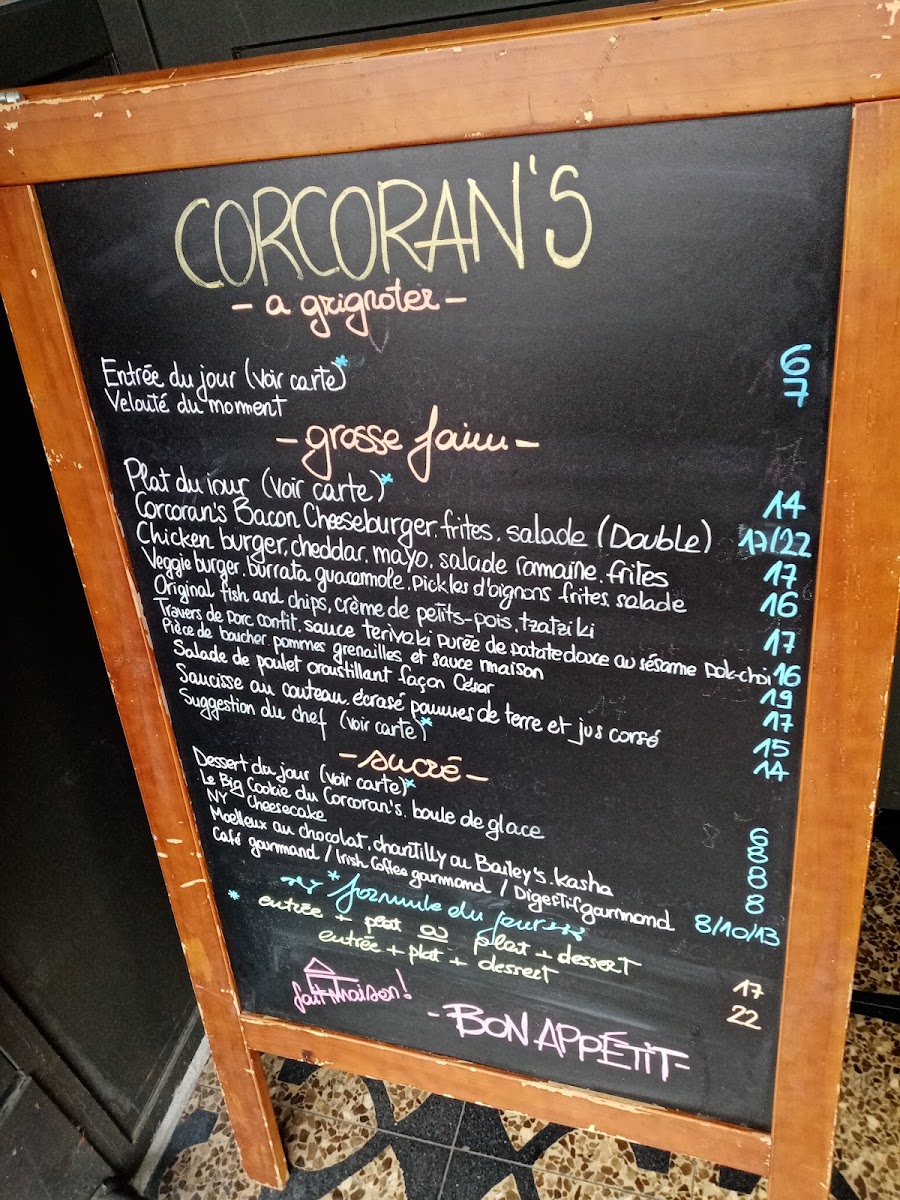 CORCORAN'S
- a grignoter -
Entrée du jour (voir carte)* 6
Velouté du moment 7
- grosse faim -
Plat du jour (voir carte)* 14
Corcoran's Bacon Cheeseburger, frites, salade (Double) 17/22
Chicken burger, cheddar, mayo, salade romaine, frites 17
Veggie burger, burrata guacamole, pickles d'oignons frites, salade 16
Original fish and chips, crème de petits-pois, tzatziki 17
Travers de porc confit, sauce teriyaki purée de patate douce au sésame pak-choi 16
Pièce de boucher pommes grenailles et sauce maison 19
Salade de poulet croustillant façon César 17
Saucisse au couteau, écrasé pommes de terre et jus corsé 15
Suggestion du chef (voir carte)* 14
- sucré -
Dessert du jour (voir carte)* 6
Le Big Cookie du Corcoran's, boule de glace 8
NY Cheesecake 8
Moelleux au chocolat, chantilly au Bailey's, Kasha 8
Café gourmand / Irish Coffee gourmand / Digestif gourmand 8/10/13
* formule du jour
* entrée + plat ou plat + dessert 17
entrée + plat + dessert 22
fait maison!
- BON APPÉTIT -